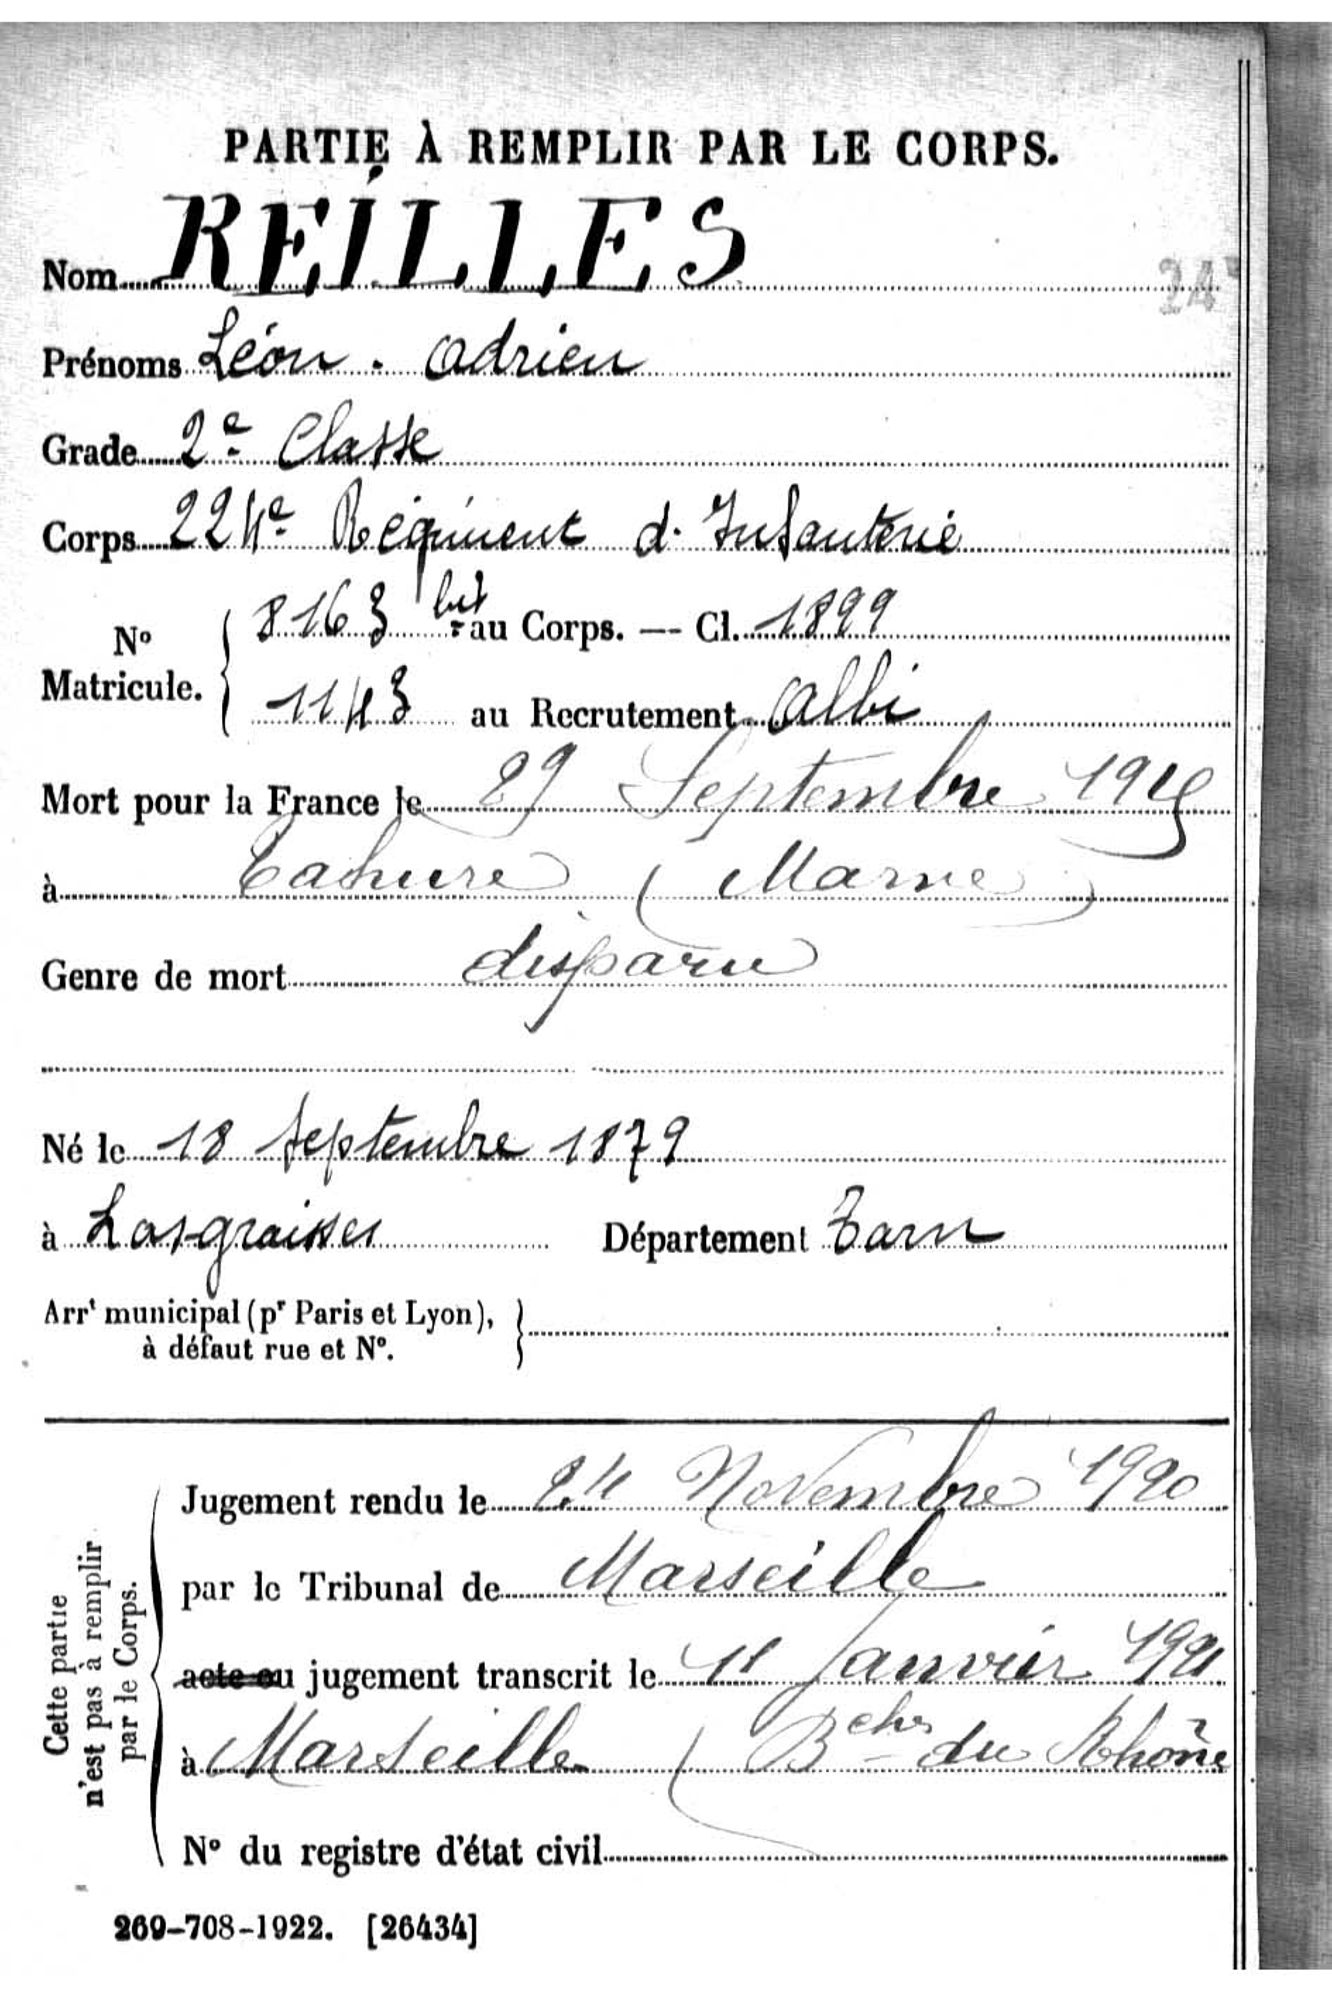 PARTIE À REMPLIR PAR LE CORPS.
Nom REILLES
24
Prénoms Léon. Adrien
Grade 2e Classe
Corps 224e Régiment d. Infanterie
N° Matricule. 8163 bis au Corps. — Cl. 1899
1143 au Recrutement Albi
Mort pour la France le 29 Septembre 1915
à Tahure (Marne)
Genre de mort disparu
Né le 18 Septembre 1879
à Lasgraisses Département Tarn
Arrt municipal (pr Paris et Lyon),
à défaut rue et N°.
Cette partie
n'est pas à remplir
par le Corps.
Jugement rendu le 24 Novembre 1920
par le Tribunal de Marseille
acte ou jugement transcrit le 11 Janvier 1921
à Marseille (Bches du Rhône
N° du registre d'état civil
269-708-1922. [26434]